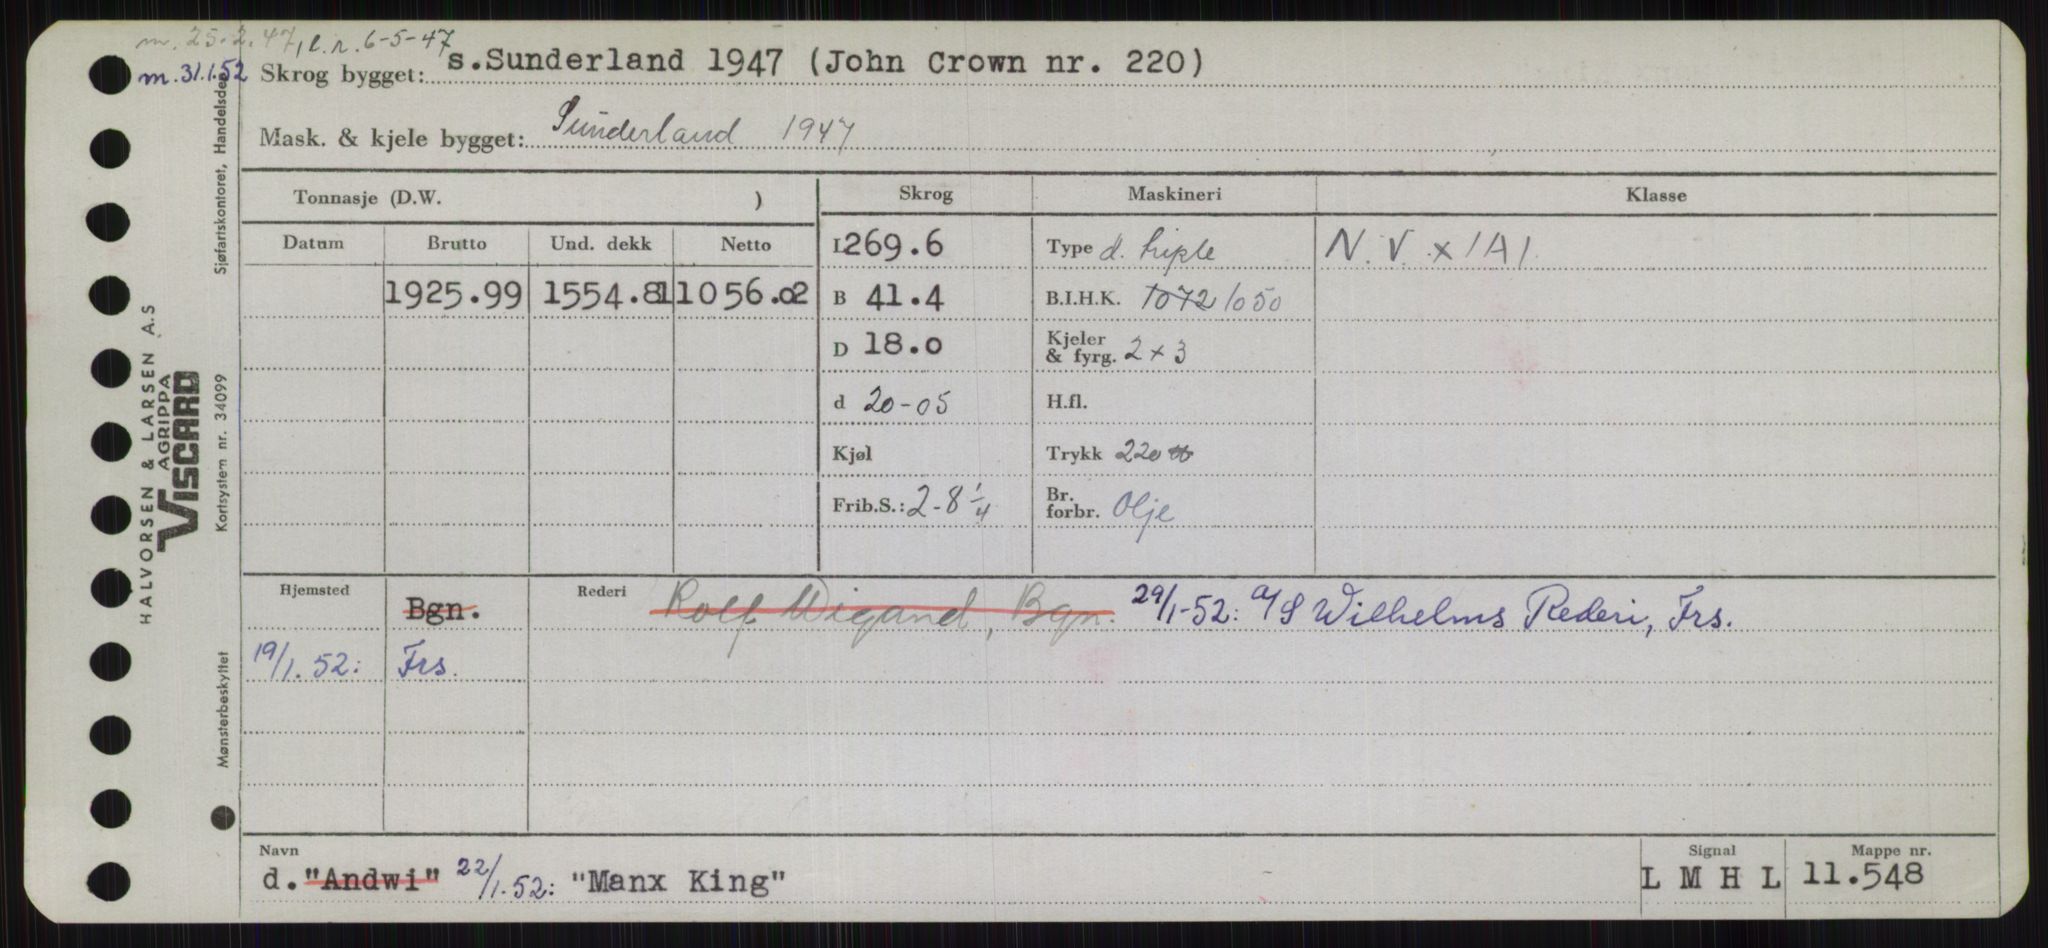 m. 25.2.47, l.r. 6-5-47
m. 31.1.52 Skrog bygget: s.Sunderland 1947 (John Crown nr. 220)
Mask. & kjele bygget: Sunderland 1947
Tonnasje (D.W. ) Skrog Maskineri Klasse
Datum Brutto Und. dekk Netto L 269.6 Type d. triple N.V. x 1A1
1925.99 1554.81 1056.02 B 41.4 B.I.H.K. 1072 1050
D 18.0 Kjeler & fyrg. 2 x 3
d 20-05 H.fl.
Kjøl Trykk 220
Frib.S.: 2-8 1/4 Br. forbr. Olje
Hjemsted Bgn. Rederi Rolf Wigand, Bgn. 29/1-52: A/S Wilhelms Rederi, Frs.
19/1.52: Frs.
Navn Signal Mappe nr.
d. "Andwi" 22/1.52: "Manx King" L M H L 11.548
Sjøfartskontoret, Handelsdep.
Kortsystem nr. 34099
Mønsterbeskyttet
HALVORSEN & LARSEN A.S
AGRIPPA
VISCARD